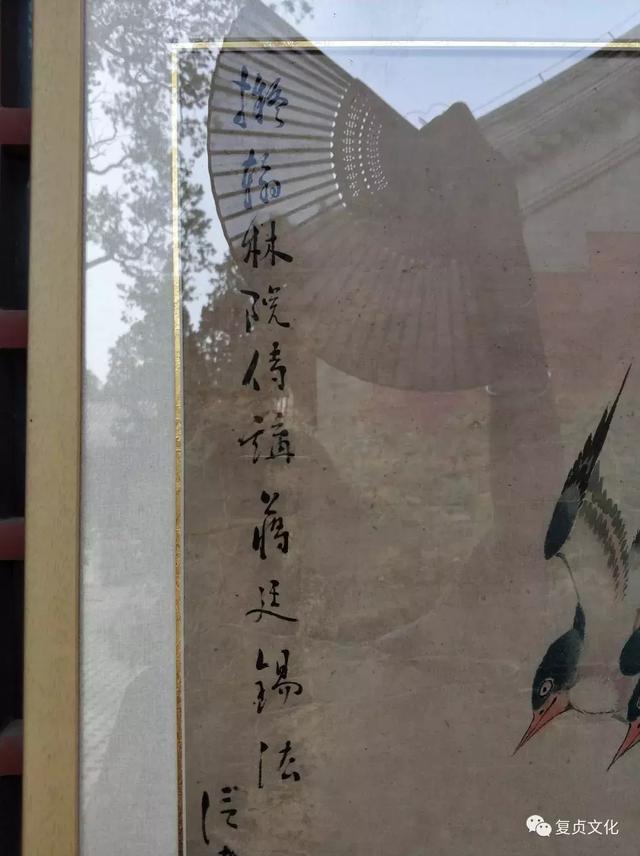 擬翰林院侍講蔣廷錫法
复贞文化